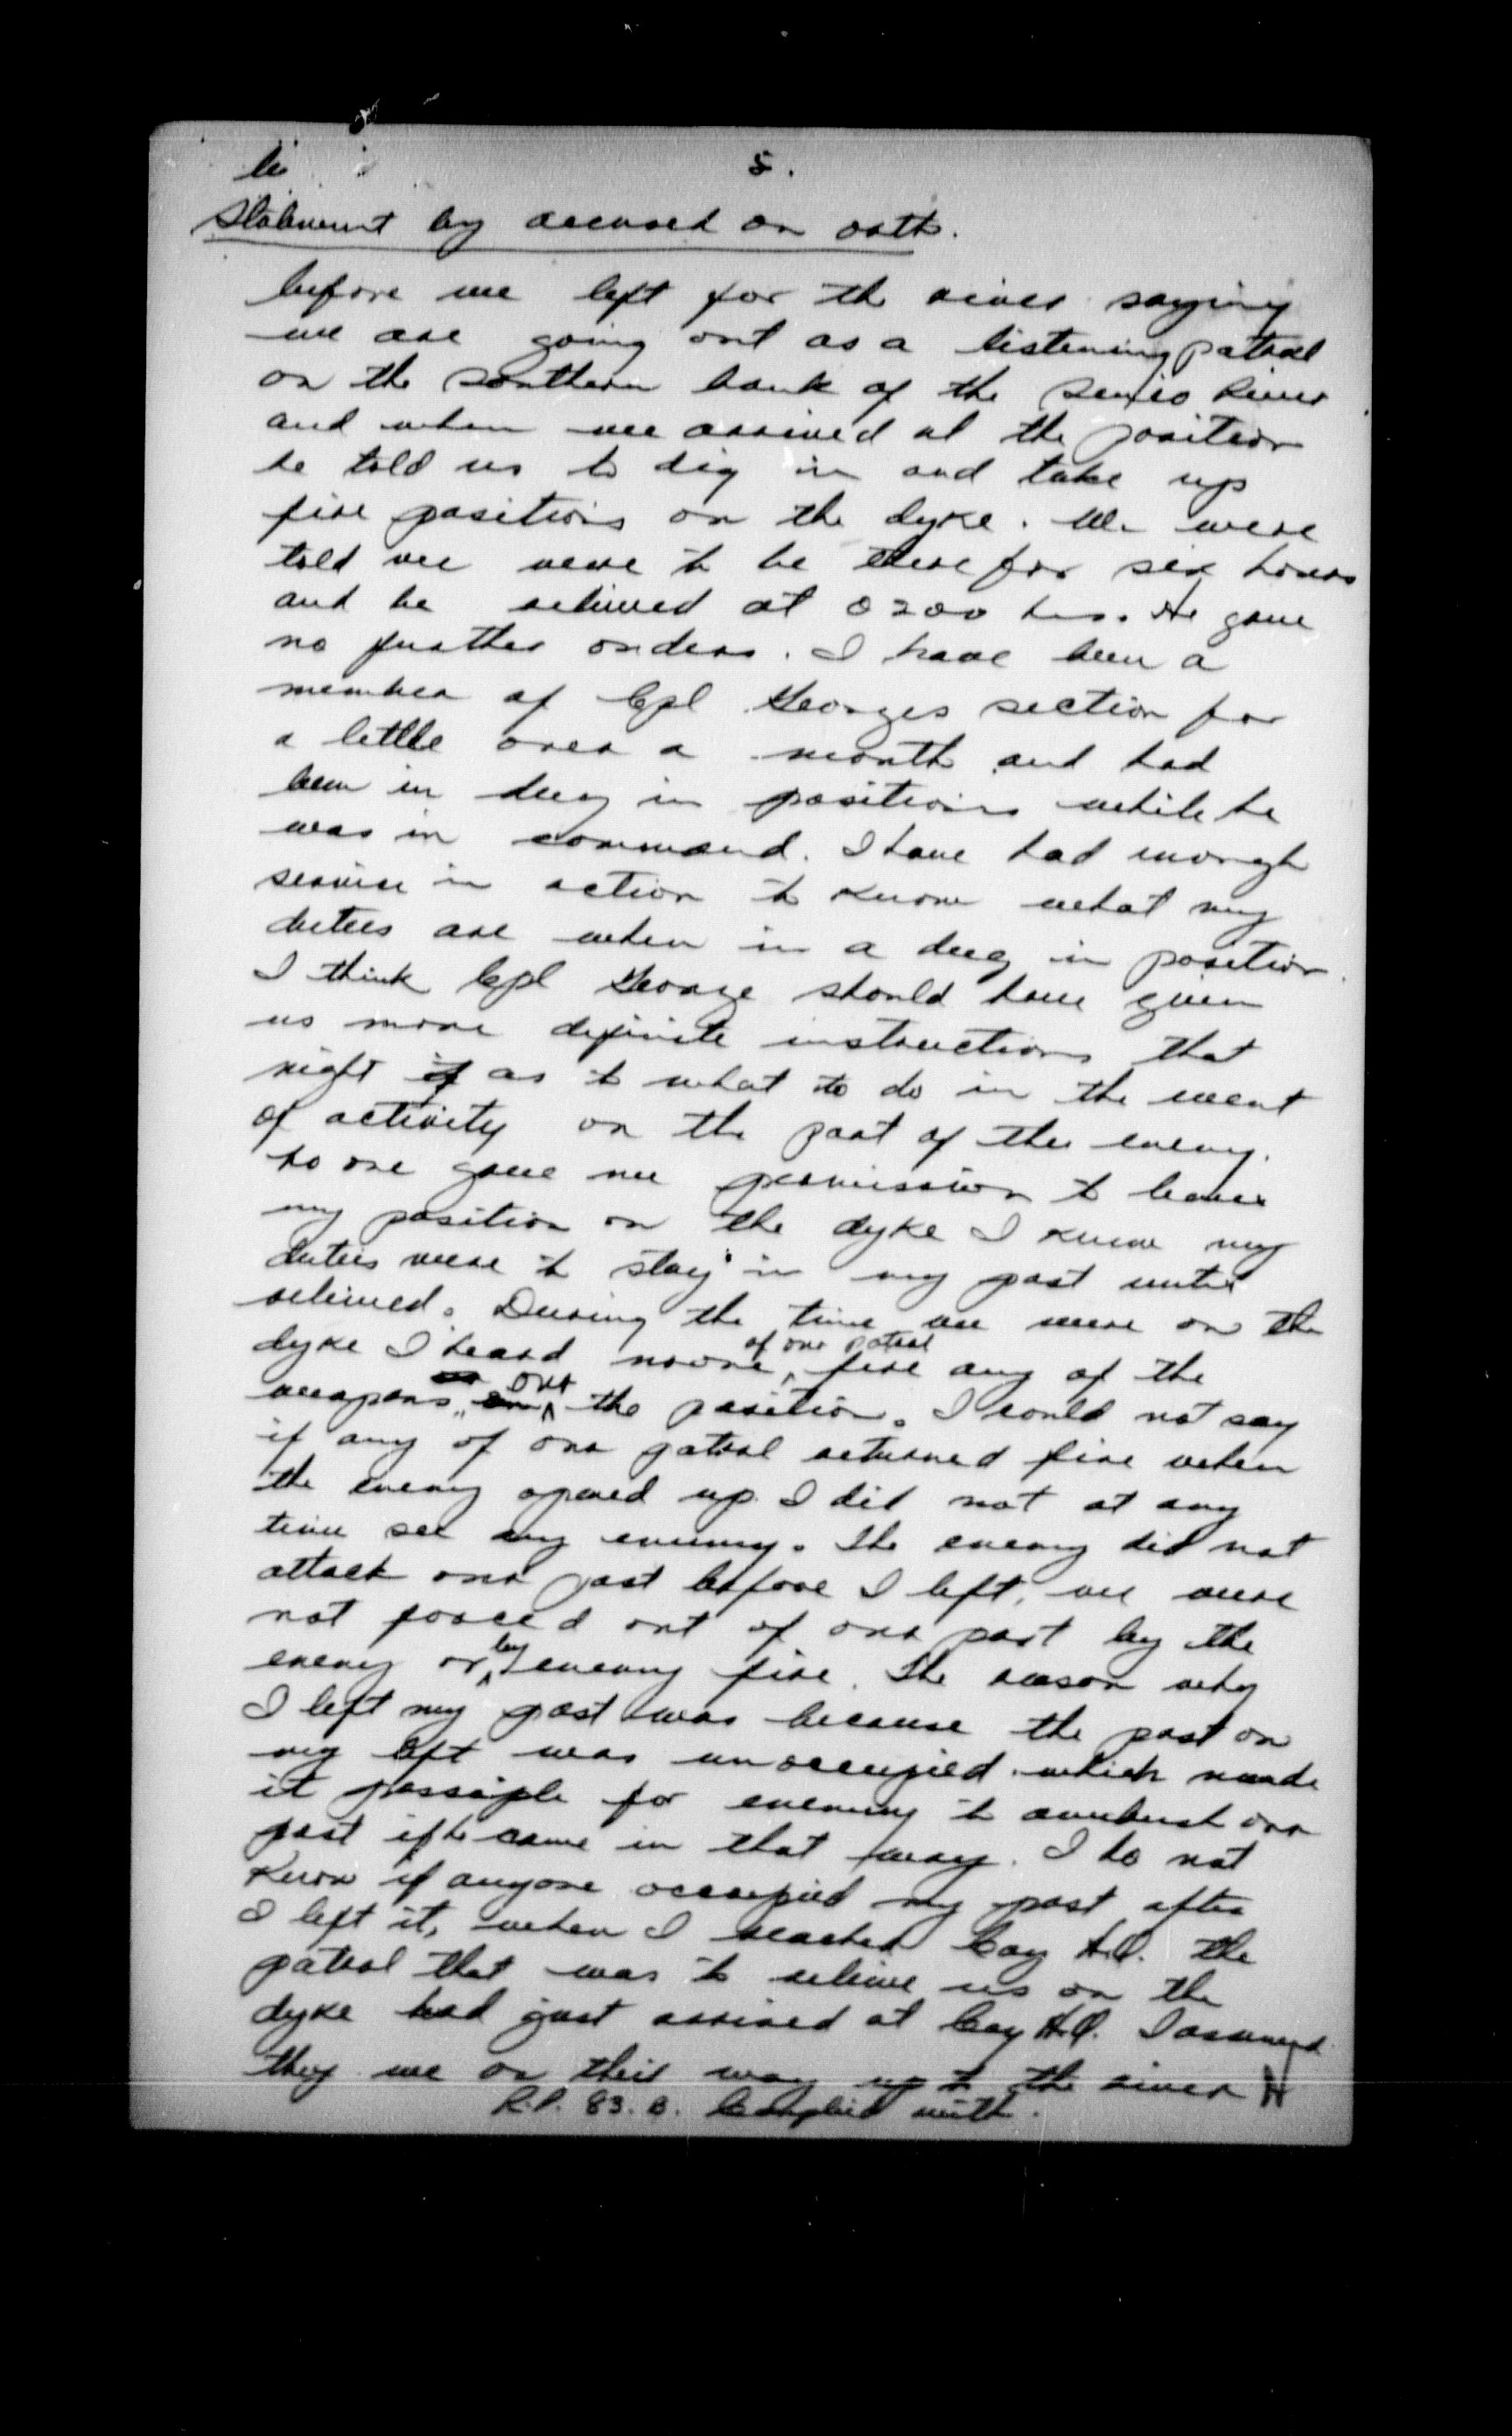 5.
Statement by accused on oath.
before we left for the river saying
we are going out as a listening patrol
on the southern bank of the Senio River
and when we arrived at the position
he told us to dig in and take up
fire positions on the dyke. We were
told we were to be there for six hours
and be relieved at 0200 hrs. He gave
no further orders. I have been a
member of Cpl Georges section for
a little over a month and had
been in dug in positions while he
was in command. I have had enough
service in action to know what my
duties are when in a dug in position.
I think Cpl George should have given
us more definite instructions that
night if as to what to do in the event
of activity on the part of the enemy.
No one gave me permission to leave
my position on the dyke I knew my
duties were to stay in my post until
relieved. During the time we were on the
dyke I heard noone of our patrol fire any of the
weapons on our the position. I could not say
if any of our patrol returned fire when
the enemy opened up. I did not at any
time see any enemy. The enemy did not
attack our post before I left, we were
not forced out of our post by the
enemy or by enemy fire. The reason why
I left my post was because the post on
my left was unoccupied which made
it possiple for enemy to ambush our
post if he came in that way. I do not
know if anyone occupied my post after
I left it, when I reached Coy H.Q. the
patrol that was to relieve us on the
dyke had just arrived at Coy H.Q. I assumed
they we on their way up to the river
R.P. 83. B. Complied with.